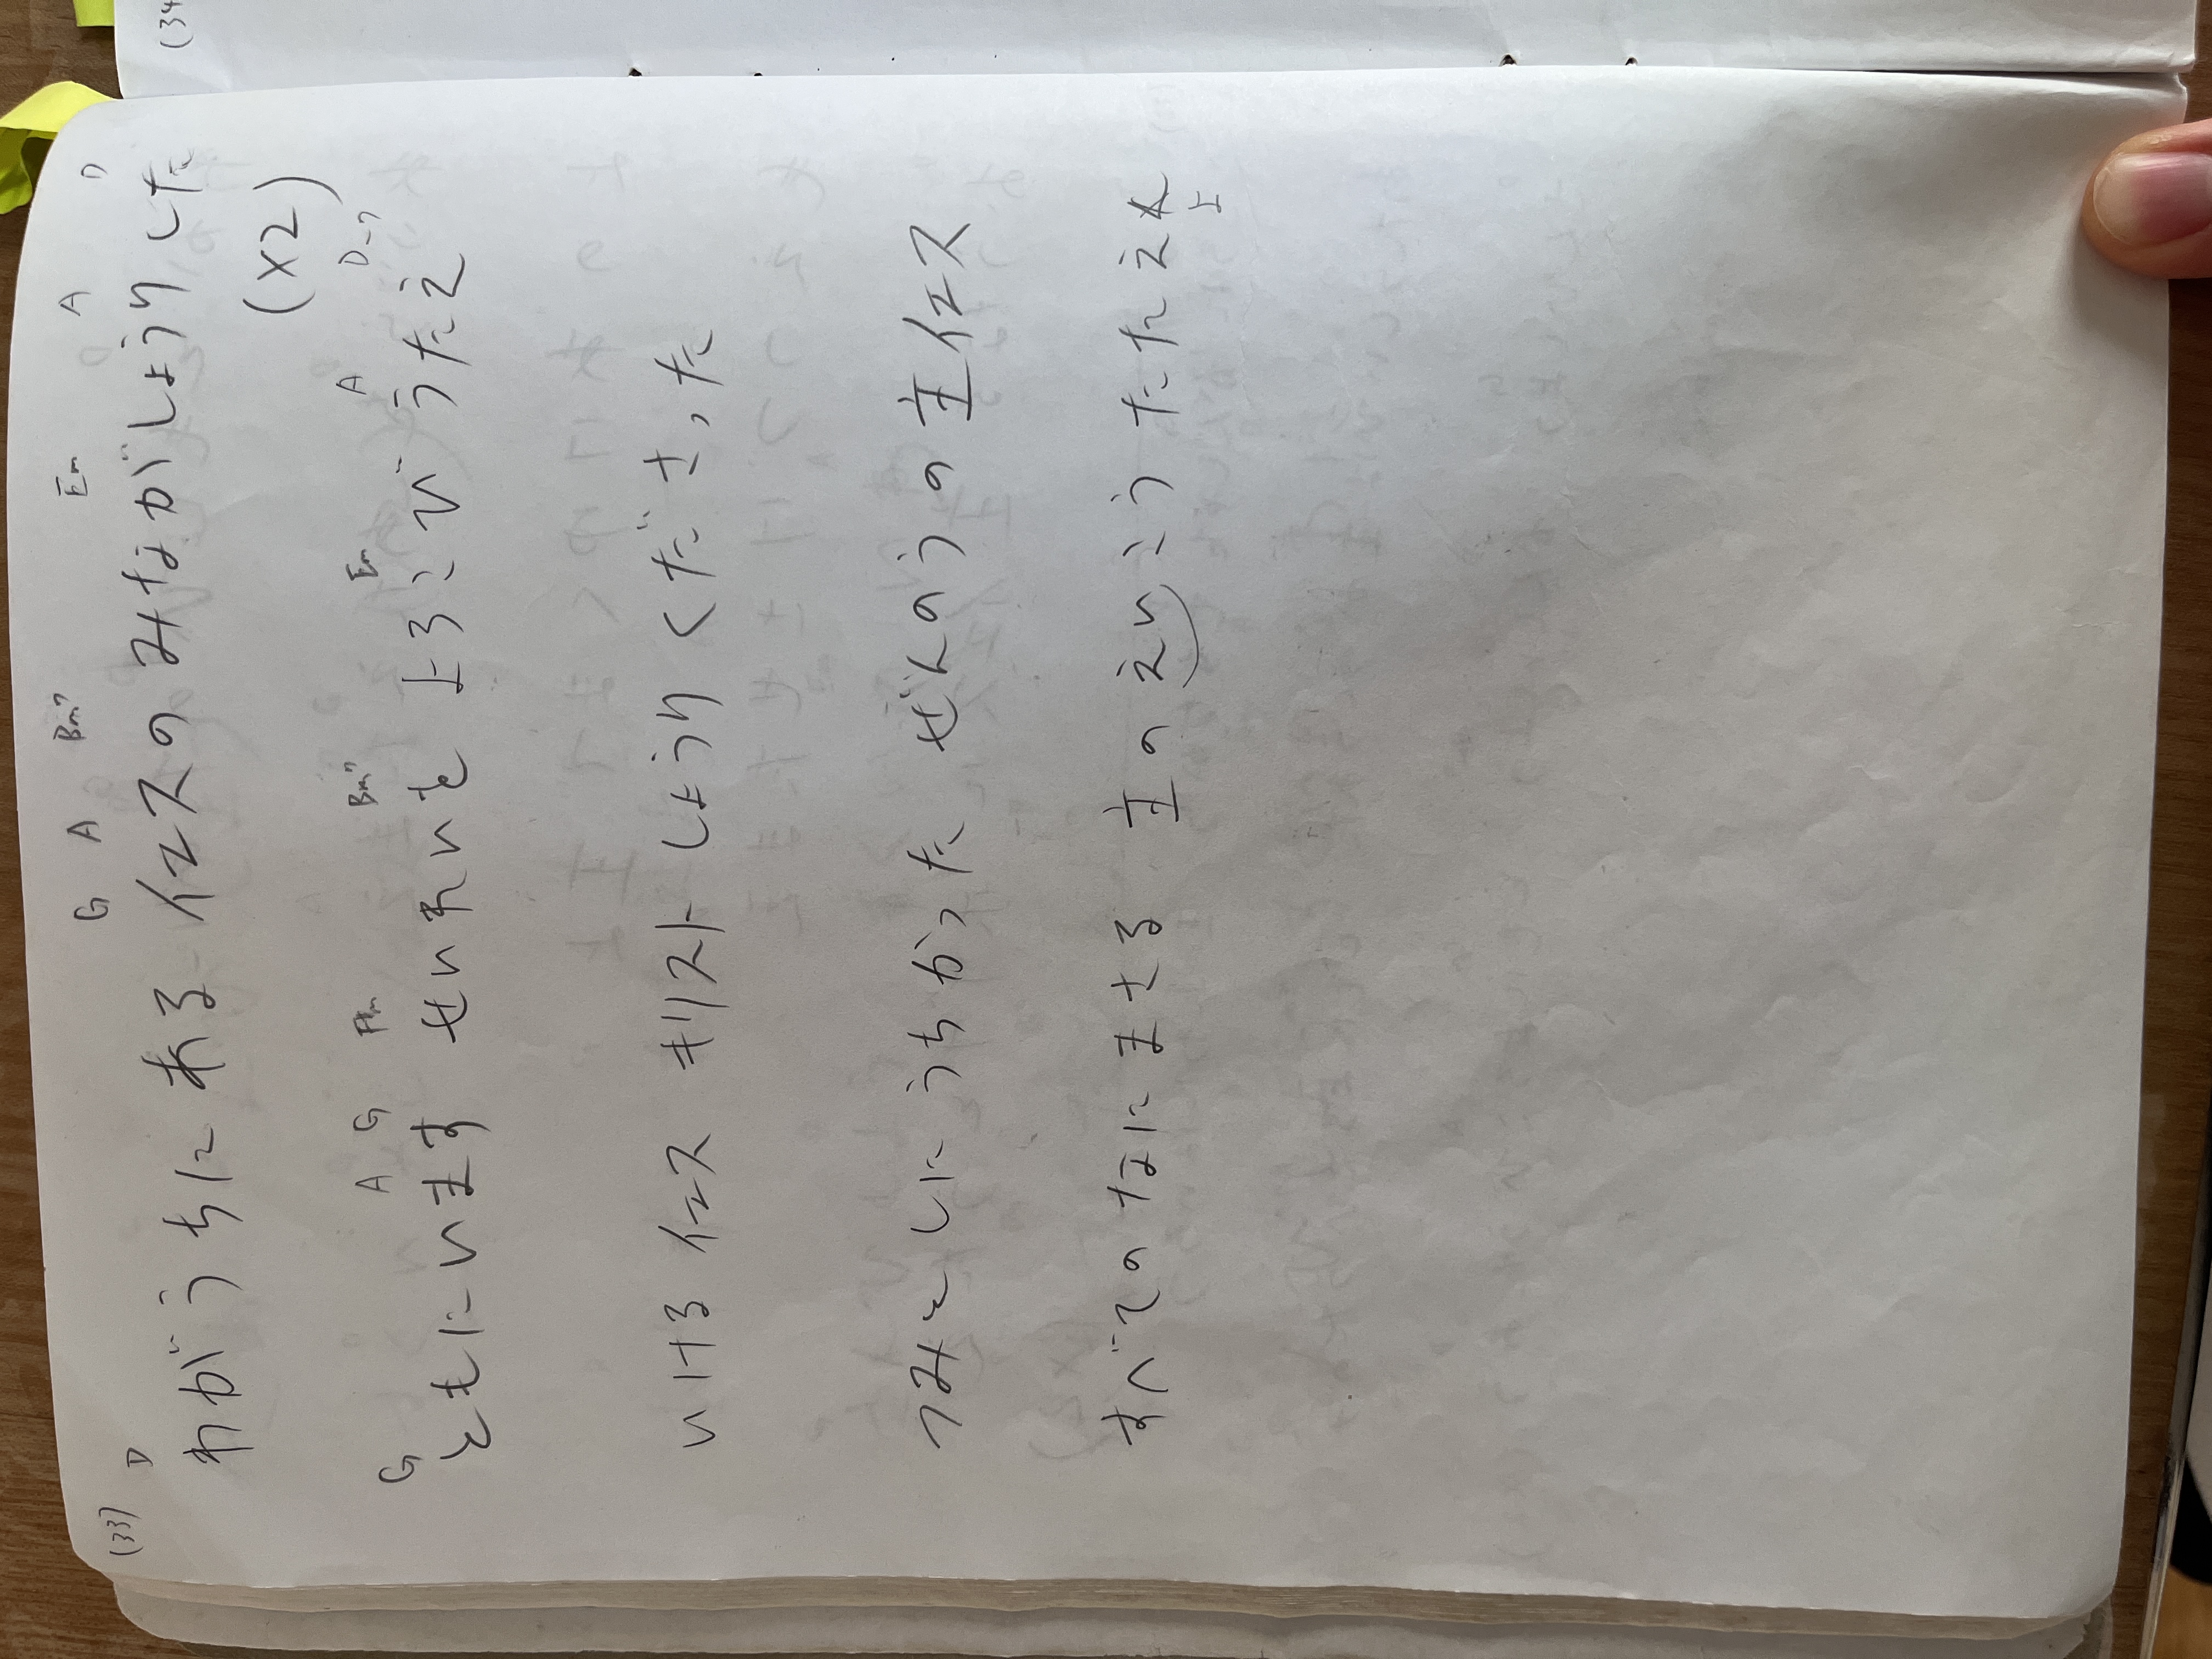 (34
(33)
D G A Bm7 Em A D
わがうちにある イエスのみながしょうりした
(×2)
G A G F#m Bm7 Em A D-7
ともにいます せいれいを よろこびうたえ
いける イエス キリスト しょうり くださった
つみとしに うちかった ぜんのうの主イエス
すべての なに まさる 主の えいこう たたえ
よ